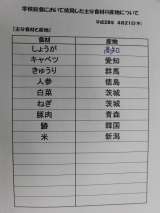 学校給食において使用した主な食材の産地について
平成28年 4月21日(木)
【主な食材と産地】
食材 産地
しょうが 高知
キャベツ 愛知
きゅうり 群馬
人参 徳島
白菜 茨城
ねぎ 茨城
豚肉 青森
鯖 韓国
米 新潟